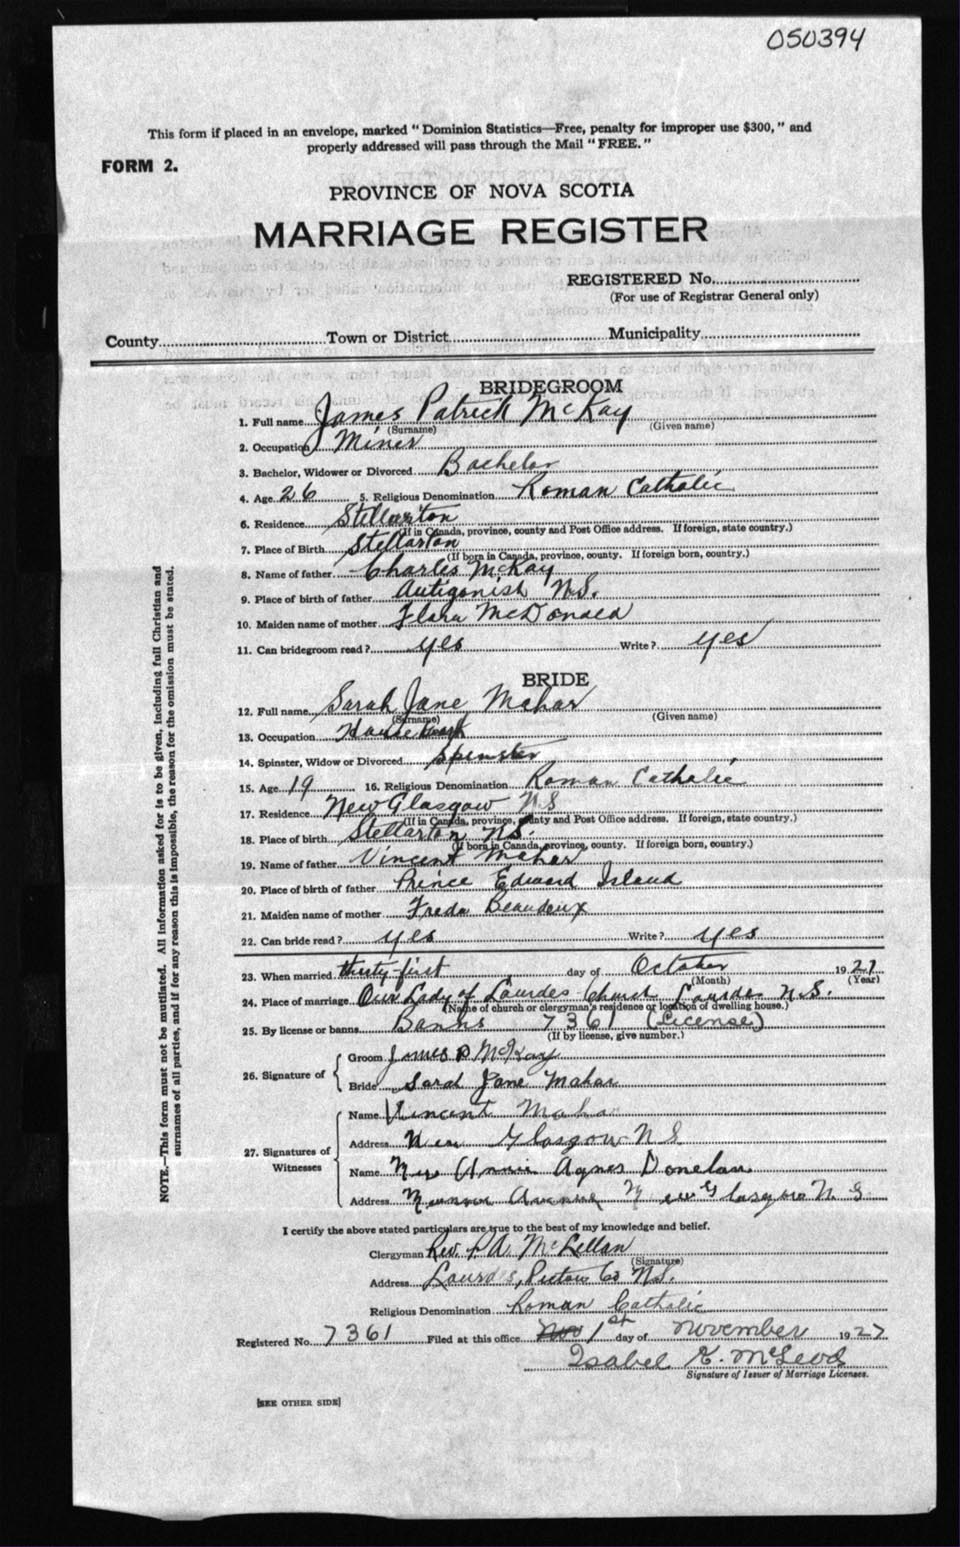 050394
This form if placed in an envelope, marked "Dominion Statistics—Free, penalty for improper use $300," and
properly addressed will pass through the Mail "FREE."
FORM 2.
PROVINCE OF NOVA SCOTIA
MARRIAGE REGISTER
REGISTERED No.
(For use of Registrar General only)
County Town or District Municipality
BRIDEGROOM
1. Full name James Patrick McKay
(Surname) (Given name)
2. Occupation Miner
3. Bachelor, Widower or Divorced Bachelor
4. Age 26 5. Religious Denomination Roman Catholic
6. Residence Stellarton
(If in Canada, province, county and Post Office address. If foreign, state country.)
7. Place of Birth Stellarton
(If born in Canada, province, county. If foreign born, country.)
8. Name of father Charles McKay
9. Place of birth of father Antigonish N.S.
10. Maiden name of mother Flora McDonald
11. Can bridegroom read? yes Write? yes
BRIDE
12. Full name Sarah Jane Mahar
(Surname) (Given name)
13. Occupation House
14. Spinster, Widow or Divorced Spinster
15. Age 19 16. Religious Denomination Roman Catholic
17. Residence New Glasgow N.S
(If in Canada, province, county and Post Office address. If foreign, state country.)
18. Place of birth Stellarton N.S.
(If born in Canada, province, county. If foreign born, country.)
19. Name of father Vincent Mahar
20. Place of birth of father Prince Edward Island
21. Maiden name of mother Freda
22. Can bride read? yes Write? yes
23. When married thirty-first day of October 1927
(Month) (Year)
24. Place of marriage Our Lady of Lourdes Church Lourdes N.S.
(Name of church or clergyman's residence or location of dwelling house.)
25. By license or banns Banns 7361 (License)
(If by license, give number.)
26. Signature of
Groom James P McKay
Bride Sarah Jane Mahar
27. Signatures of Witnesses
Name Vincent Mahar
Address New Glasgow N S
Name Annie Agnes Donelan
Address New Glasgow N. S
I certify the above stated particulars are true to the best of my knowledge and belief.
Clergyman Rev. A. McLellan
(Signature)
Address Lourdes, Pictou Co N.S.
Religious Denomination Roman Catholic
Registered No. 7361 Filed at this office 1st day of November 1927
Isabel K. McLeod
Signature of Issuer of Marriage Licenses.
[SEE OTHER SIDE]
NOTE.—This form must not be mutilated. All information asked for is to be given, including full Christian and
surnames of all parties, and if for any reason this is impossible, the reason for the omission must be stated.